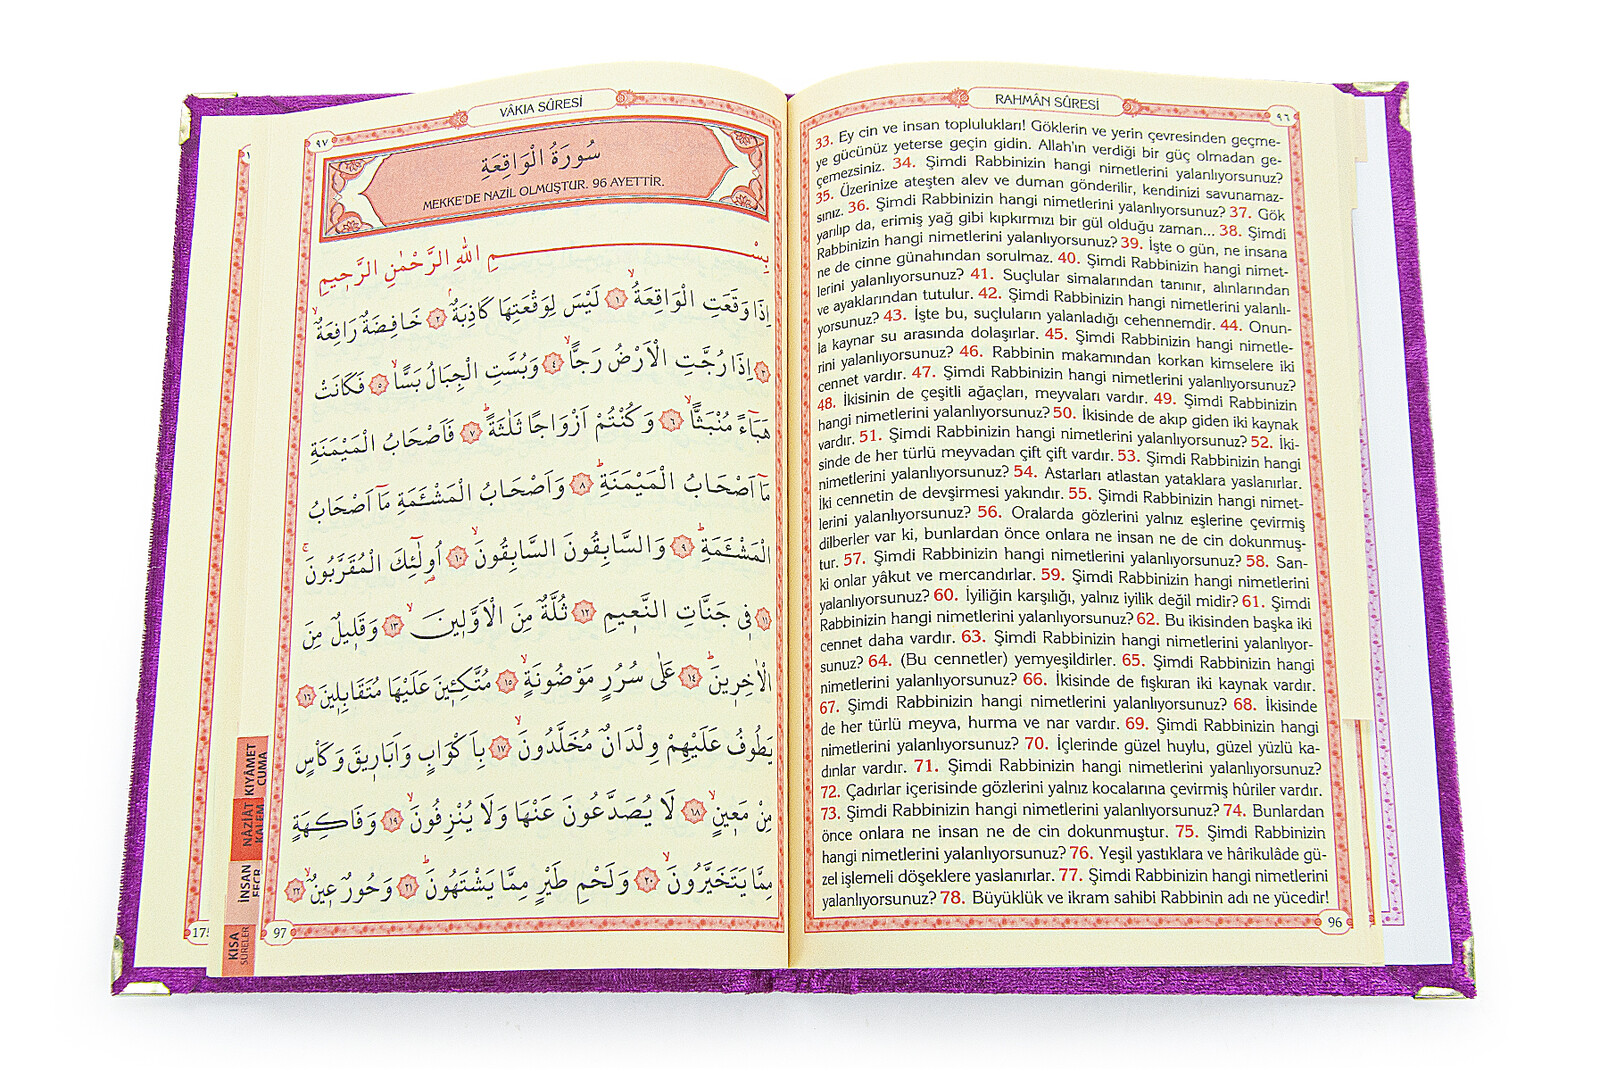 RAHMÂN SÛRESİ
٩٦
33. Ey cin ve insan toplulukları! Göklerin ve yerin çevresinden geçme-
ye gücünüz yeterse geçin gidin. Allah'ın verdiği bir güç olmadan ge-
çemezsiniz. 34. Şimdi Rabbinizin hangi nimetlerini yalanlıyorsunuz?
35. Üzerinize ateşten alev ve duman gönderilir, kendinizi savunamaz-
sınız. 36. Şimdi Rabbinizin hangi nimetlerini yalanlıyorsunuz? 37. Gök
yarılıp da, erimiş yağ gibi kıpkırmızı bir gül olduğu zaman... 38. Şimdi
Rabbinizin hangi nimetlerini yalanlıyorsunuz? 39. İşte o gün, ne insana
ne de cinne günahından sorulmaz. 40. Şimdi Rabbinizin hangi nimet-
lerini yalanlıyorsunuz? 41. Suçlular simalarından tanınır, alınlarından
ve ayaklarından tutulur. 42. Şimdi Rabbinizin hangi nimetlerini yalanlı-
yorsunuz? 43. İşte bu, suçluların yalanladığı cehennemdir. 44. Onun-
la kaynar su arasında dolaşırlar. 45. Şimdi Rabbinizin hangi nimetle-
rini yalanlıyorsunuz? 46. Rabbinin makamından korkan kimselere iki
cennet vardır. 47. Şimdi Rabbinizin hangi nimetlerini yalanlıyorsunuz?
48. İkisinin de çeşitli ağaçları, meyvaları vardır. 49. Şimdi Rabbinizin
hangi nimetlerini yalanlıyorsunuz? 50. İkisinde de akıp giden iki kaynak
vardır. 51. Şimdi Rabbinizin hangi nimetlerini yalanlıyorsunuz? 52. İki-
sinde de her türlü meyvadan çift çift vardır. 53. Şimdi Rabbinizin hangi
nimetlerini yalanlıyorsunuz? 54. Astarları atlastan yataklara yaslanırlar.
İki cennetin de devşirmesi yakındır. 55. Şimdi Rabbinizin hangi nimet-
lerini yalanlıyorsunuz? 56. Oralarda gözlerini yalnız eşlerine çevirmiş
dilberler var ki, bunlardan önce onlara ne insan ne de cin dokunmuş-
tur. 57. Şimdi Rabbinizin hangi nimetlerini yalanlıyorsunuz? 58. San-
ki onlar yâkut ve mercandırlar. 59. Şimdi Rabbinizin hangi nimetlerini
yalanlıyorsunuz? 60. İyiliğin karşılığı, yalnız iyilik değil midir? 61. Şimdi
Rabbinizin hangi nimetlerini yalanlıyorsunuz? 62. Bu ikisinden başka iki
cennet daha vardır. 63. Şimdi Rabbinizin hangi nimetlerini yalanlıyor-
sunuz? 64. (Bu cennetler) yemyeşildirler. 65. Şimdi Rabbinizin hangi
nimetlerini yalanlıyorsunuz? 66. İkisinde de fışkıran iki kaynak vardır.
67. Şimdi Rabbinizin hangi nimetlerini yalanlıyorsunuz? 68. İkisinde
de her türlü meyva, hurma ve nar vardır. 69. Şimdi Rabbinizin hangi
nimetlerini yalanlıyorsunuz? 70. İçlerinde güzel huylu, güzel yüzlü ka-
dınlar vardır. 71. Şimdi Rabbinizin hangi nimetlerini yalanlıyorsunuz?
72. Çadırlar içerisinde gözlerini yalnız kocalarına çevirmiş hûriler vardır.
73. Şimdi Rabbinizin hangi nimetlerini yalanlıyorsunuz? 74. Bunlardan
önce onlara ne insan ne de cin dokunmuştur. 75. Şimdi Rabbinizin
hangi nimetlerini yalanlıyorsunuz? 76. Yeşil yastıklara ve hârikulâde gü-
zel işlemeli döşeklere yaslanırlar. 77. Şimdi Rabbinizin hangi nimetlerini
yalanlıyorsunuz? 78. Büyüklük ve ikram sahibi Rabbinin adı ne yücedir!
96
VÂKIA SÛRESİ
٩٧
سُورَةُ الْوَاقِعَةِ
MEKKE'DE NAZİL OLMUŞTUR. 96 AYETTİR.
بِسْمِ اللّٰهِ الرَّحْمٰنِ الرَّح۪يمِ
اِذَا وَقَعَتِ الْوَاقِعَةُۙ ١ لَيْسَ لِوَقْعَتِهَا كَاذِبَةٌۢ ٢ خَافِضَةٌ رَافِعَةٌۙ
٣ اِذَا رُجَّتِ الْاَرْضُ رَجًّاۙ ٤ وَبُسَّتِ الْجِبَالُ بَسًّاۙ ٥ فَكَانَتْ
هَبَٓاءً مُنْبَثًّاۙ ٦ وَكُنْتُمْ اَزْوَاجًا ثَلٰثَةًۜ ٧ فَاَصْحَابُ الْمَيْمَنَةِ
مَٓا اَصْحَابُ الْمَيْمَنَةِۜ ٨ وَاَصْحَابُ الْمَشْـَٔمَةِ مَٓا اَصْحَابُ
الْمَشْـَٔمَةِۜ ٩ وَالسَّابِقُونَ السَّابِقُونَۙ ١٠ اُو۬لٰٓئِكَ الْمُقَرَّبُونَۚ
١١ ف۪ي جَنَّاتِ النَّع۪يمِ ١٢ ثُلَّةٌ مِنَ الْاَوَّل۪ينَۙ ١٣ وَقَل۪يلٌ مِنَ
الْاٰخِر۪ينَۜ ١٤ عَلٰى سُرُرٍ مَوْضُونَةٍۙ ١٥ مُتَّكِـ۪ٔينَ عَلَيْهَا مُتَقَابِل۪ينَ ١٦
يَطُوفُ عَلَيْهِمْ وِلْدَانٌ مُخَلَّدُونَۙ ١٧ بِاَكْوَابٍ وَاَبَار۪يقَ وَكَأْسٍ
مِنْ مَع۪ينٍۙ ١٨ لَا يُصَدَّعُونَ عَنْهَا وَلَا يُنْزِفُونَۙ ١٩ وَفَاكِهَةٍ
مِمَّا يَتَخَيَّرُونَۙ ٢٠ وَلَحْمِ طَيْرٍ مِمَّا يَشْتَهُونَۜ ٢١ وَحُورٌ ع۪ينٌۙ ٢٢
97
KIYÂMET
CUMA
NÂZİÂT
KALEM
İNSAN
FECR
KISA
SÛRELER
175